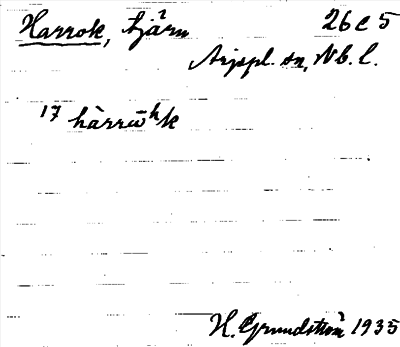 Harrok, tjärn 26 C 5
Arjepl. sn, Nb. l.
17 hàrrūʰk
H. Grundström 1935